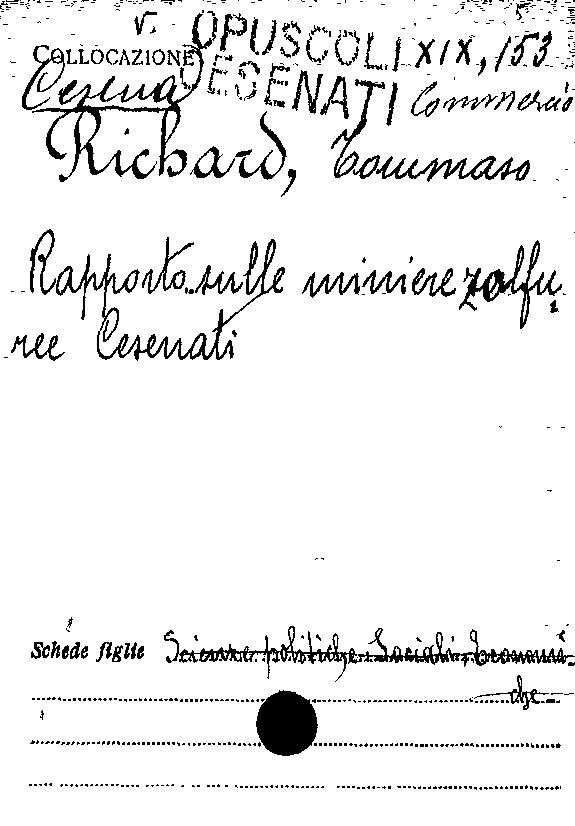 v. OPUSCOLI XIX, 153
COLLOCAZIONE
Cesena CESENATI Commercio
Richard, Tommaso
Rapporto sulle miniere zolfu
ree Cesenati
Schede figlie Scienze politiche Sociali, Economi-
che